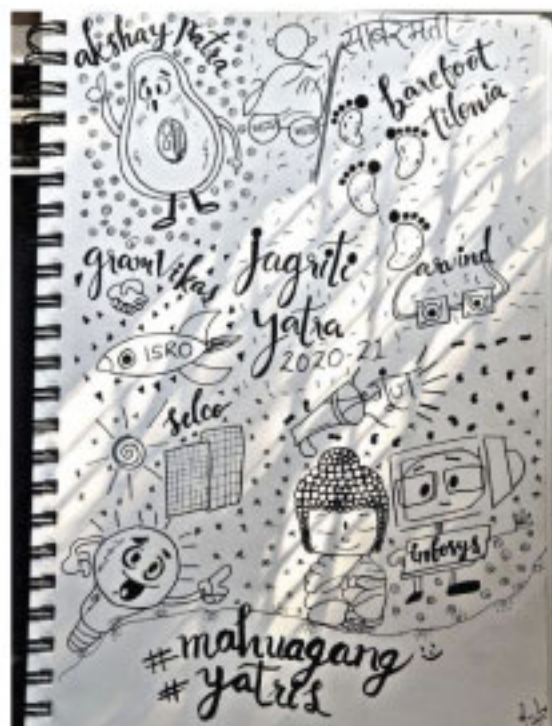 akshay patra
साबरमती
barefoot
tilonia
gramvikas
jagriti
yatra
2020-21
arvind
ISRO
selco
Infosys
#mahuagang
#yatris